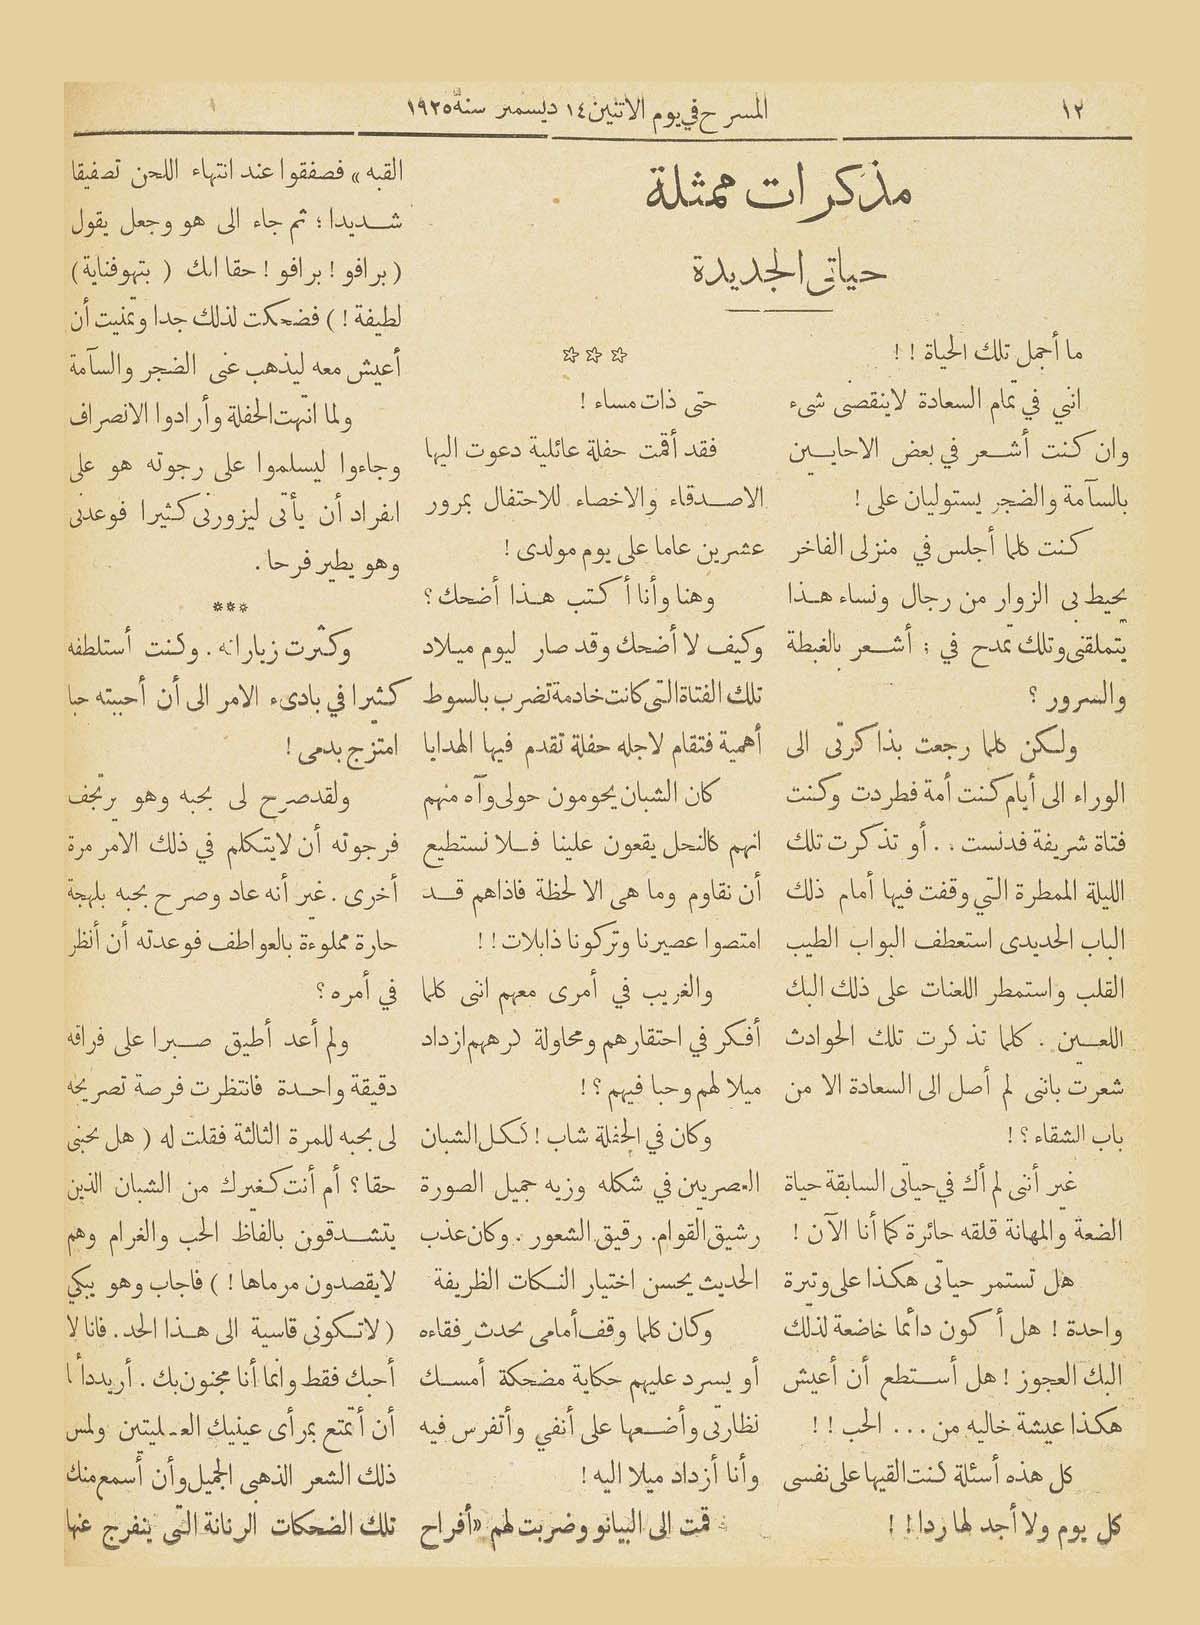 ١٢
المسرح في يوم الاثنين ١٤ ديسمبر سنة ١٩٢٥
مذكرات ممثلة
حياتى الجديدة
ما أجمل تلك الحياة ! !
انني في تمام السعادة لا ينقصنى شىء
وان كنت أشعر في بعض الاحايين
بالسآمة والضجر يستوليان على !
كنت كلما أجلس في منزلى الفاخر
يحيط بى الزوار من رجال ونساء هذا
يتملقنى وتلك تمدح في ؛ أشعر بالغبطة
والسرور ؟
ولكن كلما رجعت بذاكرتى الى
الوراء الى أيام كنت أمة فطردت وكنت
فتاة شريفة فدنست . . أو تذكرت تلك
الليلة الممطرة التي وقفت فيها أمام ذلك
الباب الحديدى استعطف البواب الطيب
القلب واستمطر اللعنات على ذلك البك
اللعين . كلما تذكرت تلك الحوادث
شعرت باننى لم أصل الى السعادة الا من
باب الشقاء ؟ !
غير أننى لم أك في حياتى السابقة حياة
الضعة والمهانة قلقه حائرة كما أنا الآن !
هل تستمر حياتى هكذا على وتيرة
واحدة ! هل أكون دائما خاضعة لذلك
البك العجوز ! هل أستطع أن أعيش
هكذا عيشة خاليه من . . . الحب ! !
كل هذه أسئلة كنت القيها على نفسى
كل يوم ولا أجد لها ردا ! !
* * *
حتى ذات مساء !
فقد أقمت حفلة عائلية دعوت اليها
الاصدقاء والاخصاء للاحتفال بمرور
عشرين عاما على يوم مولدى !
وهنا وأنا أكتب هذا أضحك ؟
وكيف لا أضحك وقد صار ليوم ميلاد
تلك الفتاة التى كانت خادمة تضرب بالسوط
أهمية فتقام لاجله حفلة تقدم فيها الهدايا
كان الشبان يحومون حولى وآه منهم
انهم كالنحل يقعون علينا فلا نستطيع
أن نقاوم وما هى الا لحظة فاذاهم قد
امتصوا عصيرنا وتركونا ذابلات ! !
والغريب في أمرى معهم اننى كلما
أفكر في احتقارهم ومحاولة كرههم ازداد
ميلا لهم وحبا فيهم ؟ !
وكان في الحفلة شاب ! ككل الشبان
العصريين في شكله وزيه جميل الصورة
رشيق القوام. رقيق الشعور . وكان عذب
الحديث يحسن اختيار النكات الظريفة
وكان كلما وقف أمامى يحدث رفقاءه
أو يسرد عليهم حكاية مضحكة أمسك
نظارتى وأضعها على أنفي وأتفرس فيه
وأنا أزداد ميلا اليه !
قمت الى البيانو وضربت لهم «أفراح
القبه » فصفقوا عند انتهاء اللحن تصفيقا
شديدا ؛ ثم جاء الى هو وجعل يقول
( برافو ! برافو ! حقا انك ( بتهوفناية )
لطيفة ! ) فضحكت لذلك جدا وتمنيت أن
أعيش معه ليذهب عنى الضجر والسآمة
ولما انتهت الحفلة وأرادوا الانصراف
وجاءوا ليسلموا على رجوته هو على
انفراد أن يأتى ليزورنى كثيرا فوعدنى
وهو يطير فرحا .
***
وكثرت زياراته . وكنت أستلطفه
كثيرا في بادىء الامر الى أن أحببته حبا
امتزج بدمى !
ولقد صرح لى بحبه وهو يرتجف
فرجوته أن لا يتكلم في ذلك الامر مرة
أخرى . غير أنه عاد وصرح بحبه بلهجة
حارة مملوءة بالعواطف فوعدته أن أنظر
في أمره ؟
ولم أعد أطيق صبرا على فراقه
دقيقة واحدة فانتظرت فرصة تصريحه
لى بحبه للمرة الثالثة فقلت له ( هل تحبنى
حقا ؟ أم أنت كغيرك من الشبان الذين
يتشدقون بالفاظ الحب والغرام وهم
لا يقصدون مرماها ! ) فاجاب وهو يبكي
( لا تكونى قاسية الى هذا الحد . فانا لا
أحبك فقط وانما أنا مجنون بك . أريد دائما
أن أتمتع بمرأى عينيك ولمس
ذلك الشعر الذهبى الجميل وأن أسمع منك
تلك الضحكات الرنانة التى ينفرج عنها